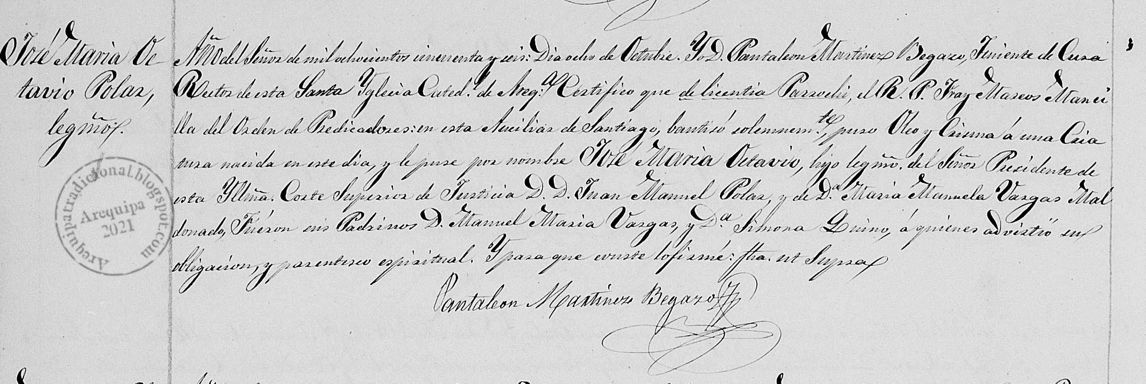 José Maria Oc
tavio Polar,
legmo.
Año del Señor de mil ochocientos cincuenta y seis: Dia ocho de Octubre. Yo D. Pantaleon Martinez Begazo, Teniente de Cura
Rector de esta Santa Yglecia Cated.l de Areq.a Certifico que de licentia Parrochi, el R. P. Fray Marcos Manci
lla del Orden de Predicadores: en esta Auxiliar de Santiago, bautisó solemnem.te puso Oleo y Crisma á una Cria
tura nacida en este dia, y le puse por nombre José Maria Octavio, hijo legmo. del Señor Presidente de
esta Yltma. Corte Superior de Justicia D. D. Juan Manuel Polar, y de D.a Maria Manuela Vargas Mal
donado, Fueron sus Padrinos D. Manuel Maria Vargas, y D.a Simona á quienes advirtió su
obligacion, y parentesco espiritual. Y para que conste lo firmé: fha. ut Supra
Pantaleon Martinez Begazo
Arequipatradicional.blogspot.com
Arequipa
2021